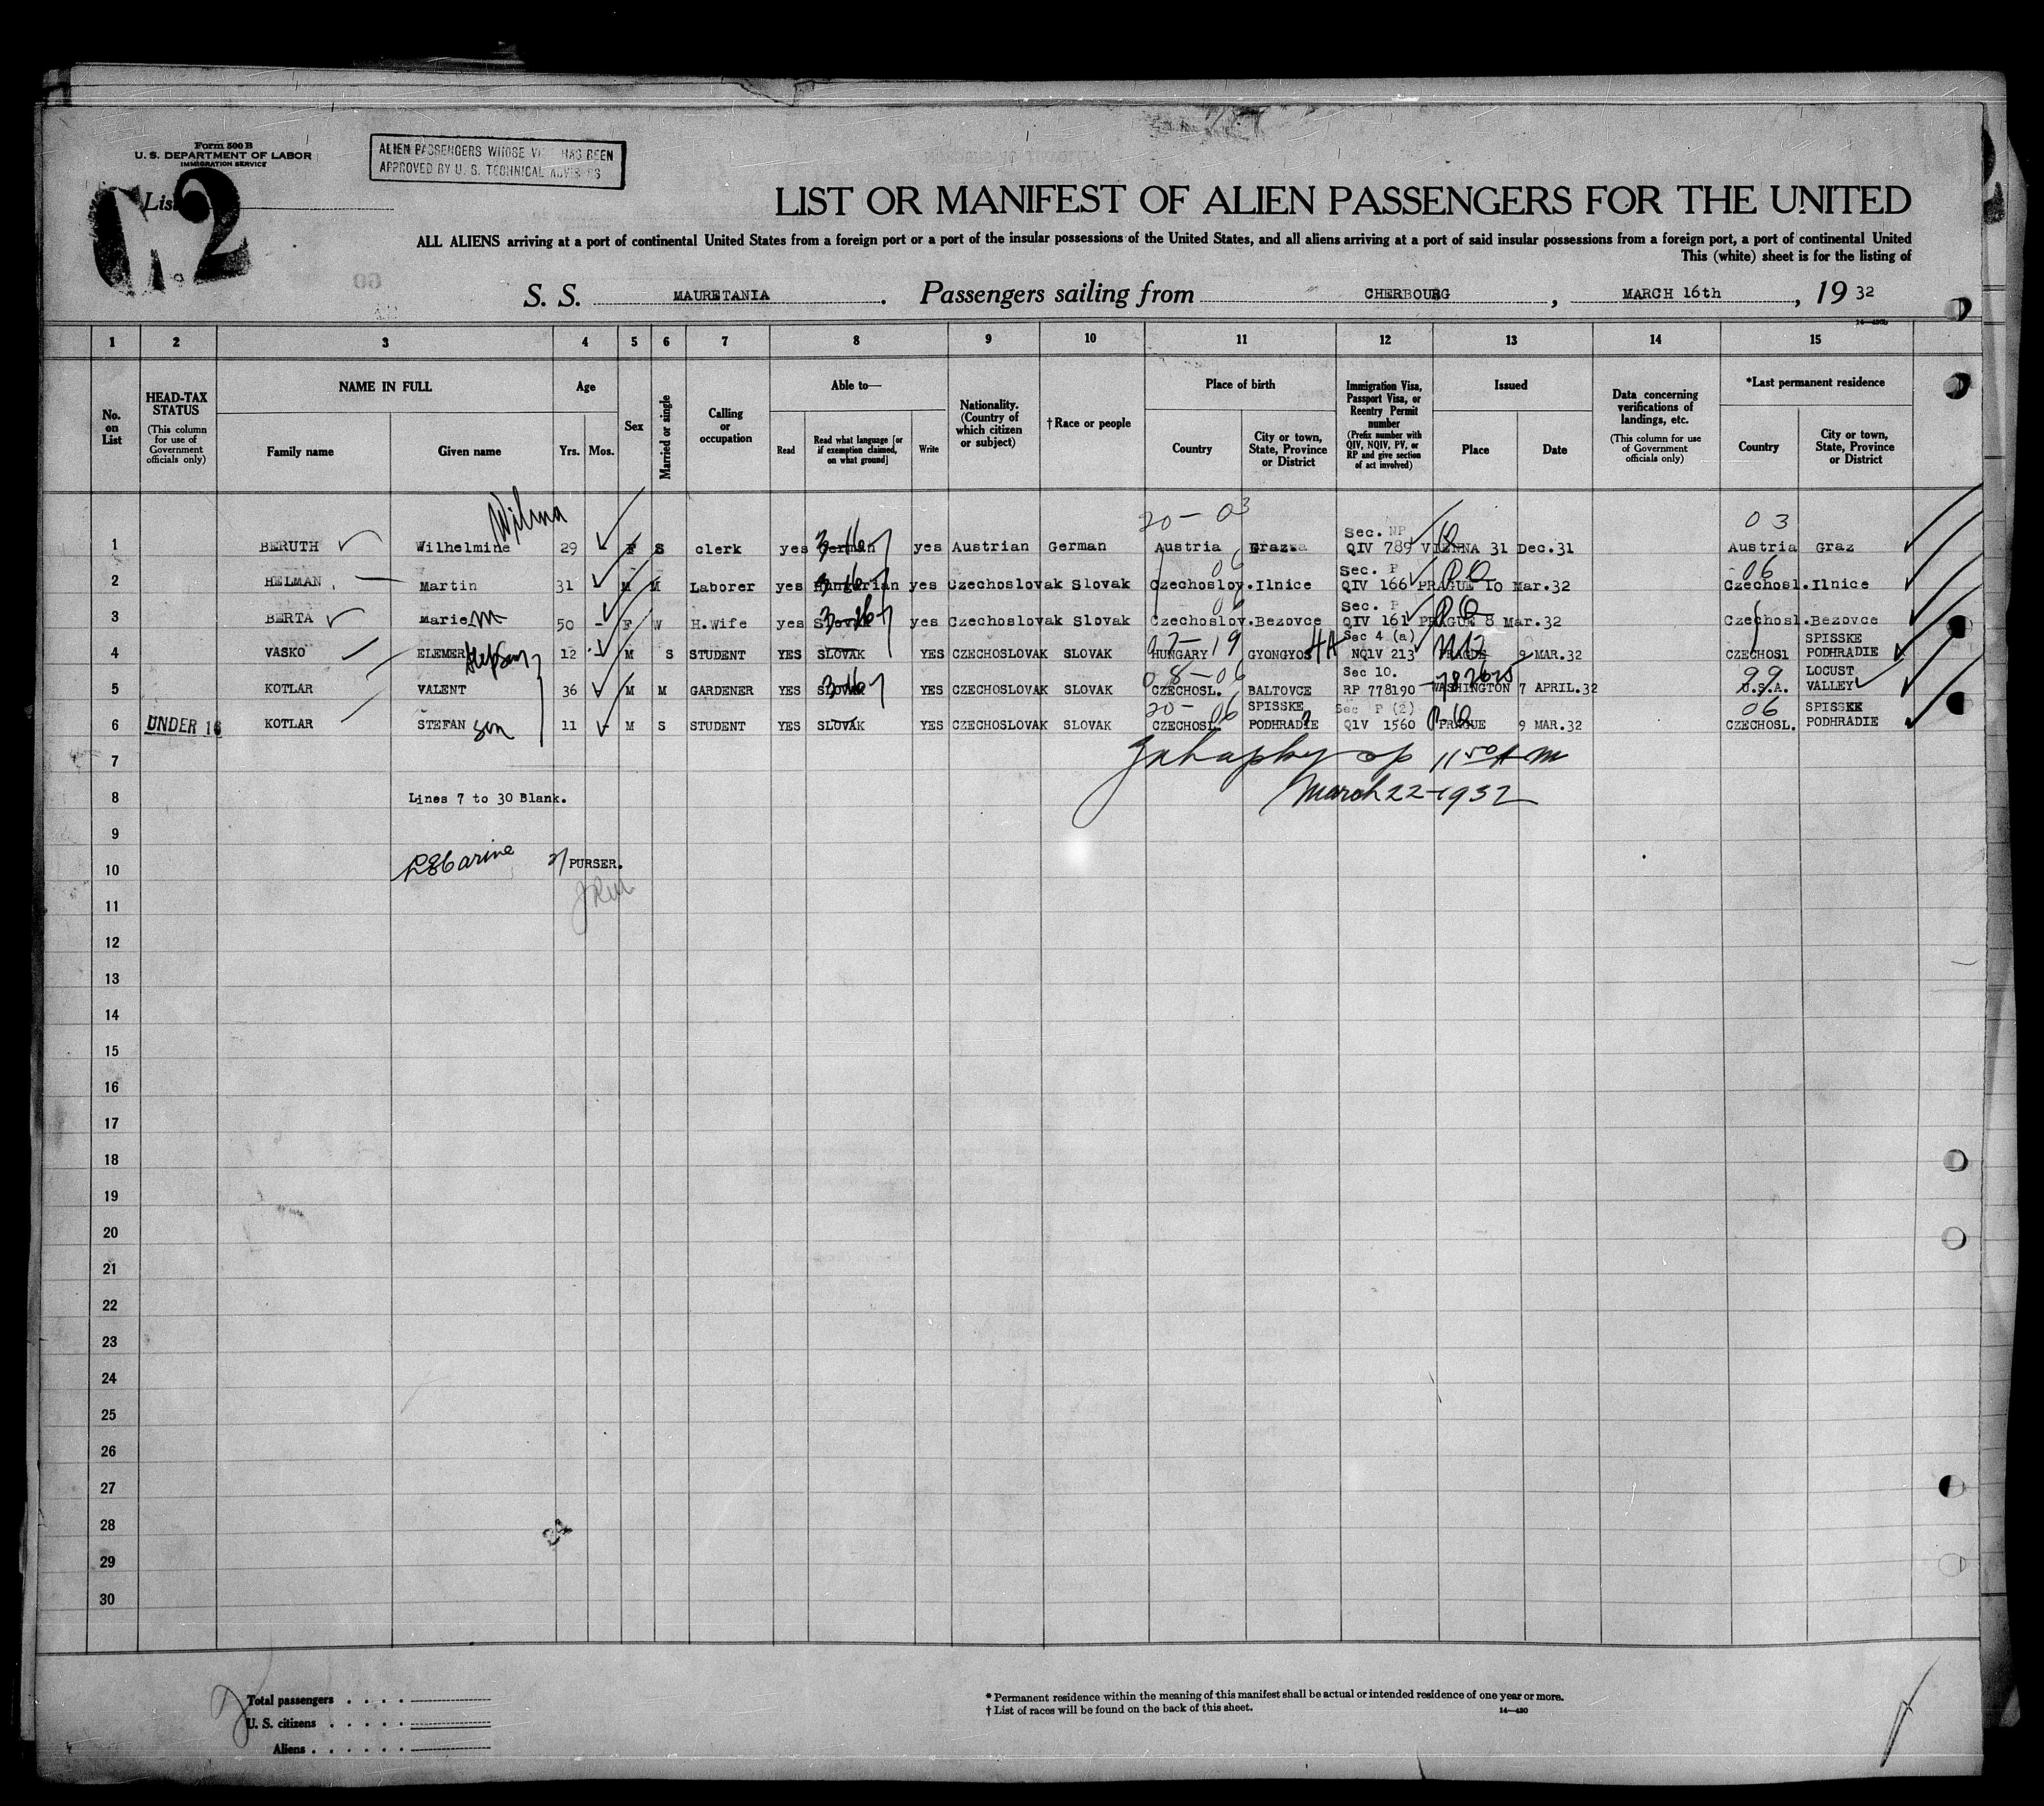 Form 500 B
U. S. DEPARTMENT OF LABOR
IMMIGRATION SERVICE
ALIEN PASSENGERS WHOSE HAS BEEN
APPROVED BY U. S. TECHNICAL
List 2
LIST OR MANIFEST OF ALIEN PASSENGERS FOR THE UNITED
ALL ALIENS arriving at a port of continental United States from a foreign port or a port of the insular possessions of the United States, and all aliens arriving at a port of said insular possessions from a foreign port, a port of continental United
This (white) sheet is for the listing of
S. S. MAURETANIA. Passengers sailing from CHERBOURG, MARCH 16th, 19 32
1 2 3 4 5 6 7 8 9 10 11 12 13 14 15
No. on List
HEAD-TAX STATUS (This column for use of Government officials only)
NAME IN FULL
Family name Given name
Age
Yrs. Mos.
Sex
Married or single
Calling or occupation
Able to—
Read Read what language [or if exemption claimed, on what ground] Write
Nationality. (Country of which citizen or subject)
†Race or people
Place of birth
Country City or town, State, Province or District
Immigration Visa, Passport Visa, or Reentry Permit number (Prefix number with QIV, NQIV, PV, or RP and give section of act involved)
Issued
Place Date
Data concerning verifications of landings, etc. (This column for use of Government officials only)
*Last permanent residence
Country City or town, State, Province or District
Wilma 20-03 Sec. NP 03
1 BERUTH Wilhelmine 29 F S clerk yes German yes Austrian German Austria Graz QIV 789 VIENNA 31 Dec.31 Austria Graz
06 Sec. P 06
2 HELMAN Martin 31 M M Laborer yes Hungarian yes Czechoslovak Slovak Czechoslov. Ilnice QIV 166 PRAGUE 10 Mar.32 Czechosl. Ilnice
06 Sec. P
3 BERTA Marie 50 F W H.Wife yes Slovak yes Czechoslovak Slovak Czechoslov. Bezovce QIV 161 PRAGUE 8 Mar.32 Czechosl. Bezovce
19 Sec 4 (a) SPISSKE
4 VASKO ELEMER stepson 12 M S STUDENT YES SLOVAK YES CZECHOSLOVAK SLOVAK HUNGARY GYONGYOS NQ1V 213 PRAGUE 9 MAR.32 CZECHOSl PODHRADIE
08-06 Sec 10. 99 LOCUST
5 KOTLAR VALENT 36 M M GARDENER YES SLOVAK YES CZECHOSLOVAK SLOVAK CZECHOSL. BALTOVCE RP 778190 WASHINGTON 7 APRIL.32 U.S.A. VALLEY
20-06 SPISSKE Sec P (2) 06 SPISSKE
6 UNDER 16 KOTLAR STEFAN son 11 M S STUDENT YES SLOVAK YES CZECHOSLOVAK SLOVAK CZECHOSL. PODHRADIE Q1V 1560 PRAGUE 9 MAR.32 CZECHOSL. PODHRADIE
7 11 50 AM
8 Lines 7 to 30 Blank. March 22-1932
9
10 PURSER.
11
12
13
14
15
16
17
18
19
20
21
22
23
24
25
26
27
28
29
30
Total passengers . . . .
U. S. citizens . . . . .
Aliens . . . . . .
* Permanent residence within the meaning of this manifest shall be actual or intended residence of one year or more.
† List of races will be found on the back of this sheet.
14—430